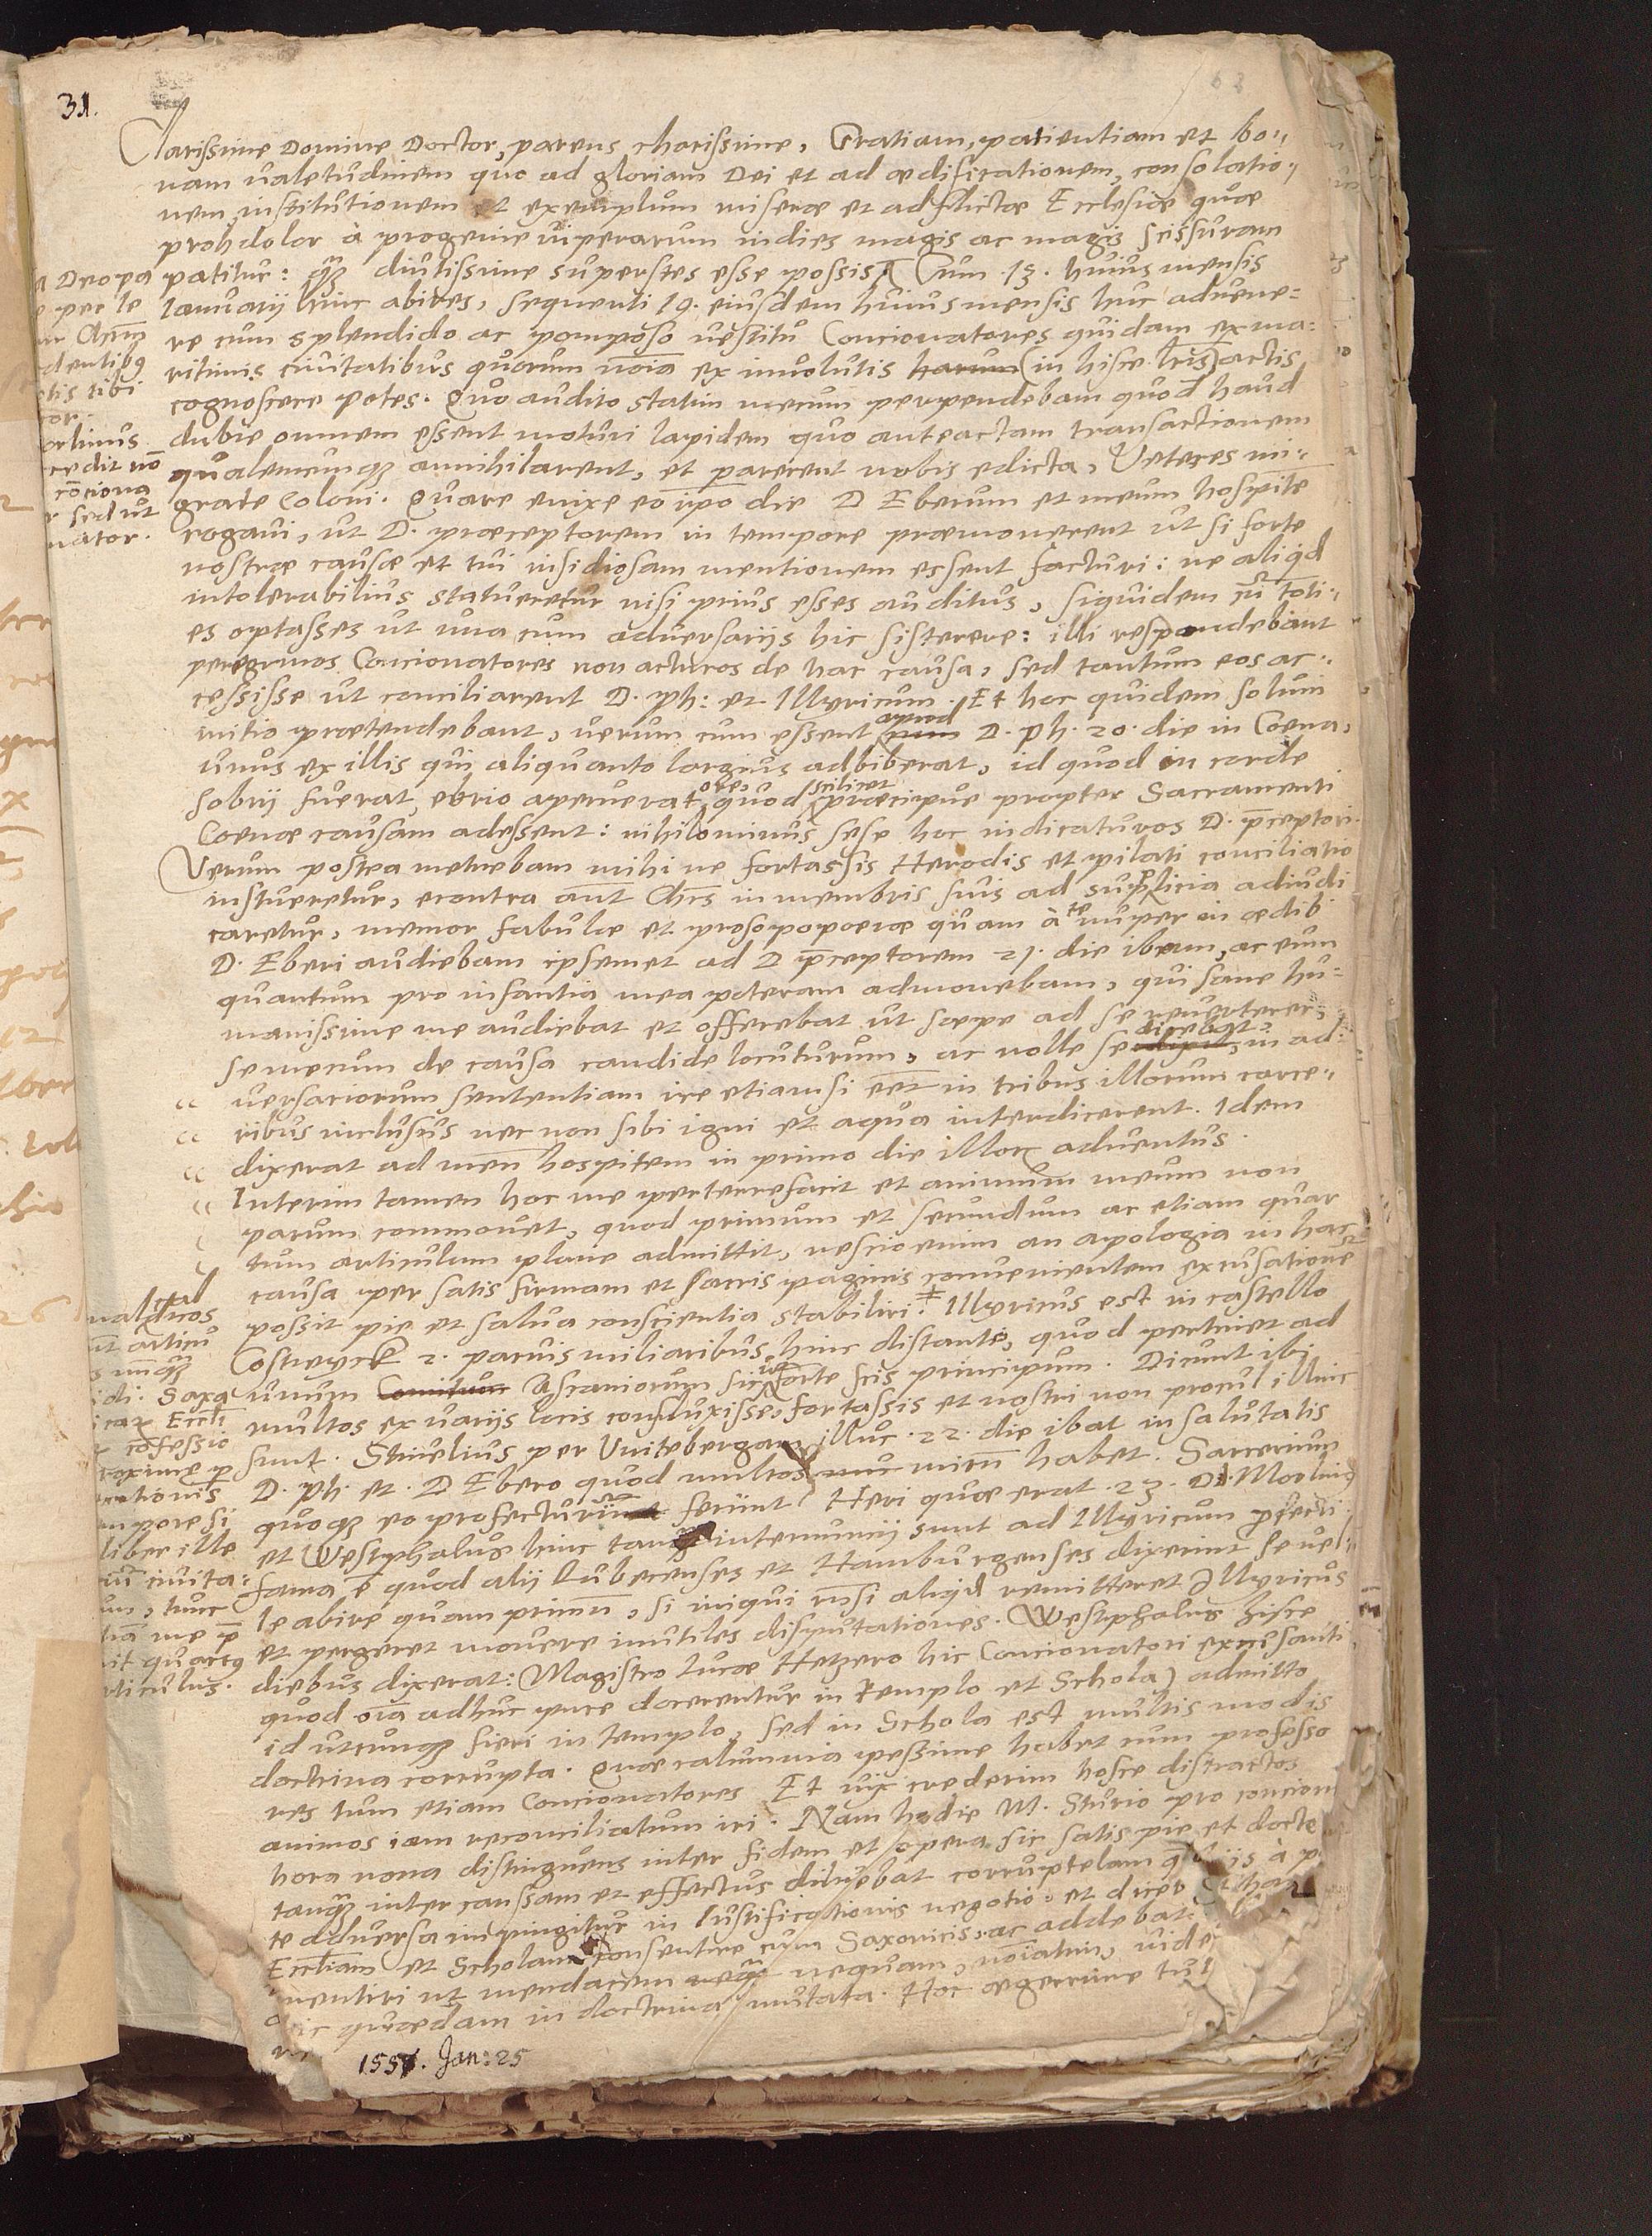 31.
Clarissime Domine Doctor, parens charissime, Gratiam, patientiam et bo-
nam valetudinem quo ad gloriam Dei et ad ædificationem, consolatio-
nem, institutionem et exemplum miseræ et adflictæ Ecclesiæ quæ
proh dolor à progenie viperarum indies magis ac magis scissuram
patitur: quã diutissime superstes esse possis. Cum .13. huius mensis
Ianuarij hinc abires, sequenti 19. eiusdem huius mensis huc advene-
re cum splendido ac pomposo vestitu Concionatores quidam ex ma-
ritimis civitatibus quorum noĩa ex involutis harum (in hisce lris) actis
cognoscere potes. Quo audito statim mecum perpendebam quod haud
dubie omnem essent moturi lapidem quo anteactam transactionem
qualemcunq annihilarent, et pararent nobis edicta, Veteres mi-
grate Coloni. Quare enixe eo ipo die D Eberum et meum hospite
rogavi, ut D. præceptorem in tempore præmonerent ut si forte
nostræ causæ et tui insidiosam mentionem essent facturi: ne aliqd
intolerabilius statueretur nisi prius esses auditus, siquidem cũ toti-
es optasses ut una cum adversarijs hic sisterere: illi respondebant
peregrinos Concionatores non acturos de hac causa, sed tantum eos ac-
cessisse ut conciliarent D. Ph: et Illyricum. Et hoc quidem solum
initio prætendebant, verum cum essent apud D. Ph. 20. die in Coena,
unus ex illis qui aliquanto largius adbiberat, id quod in corde
sobrij fuerat, ebrio aperuerat ore, quod scilicet præcipue propter Sacramenti
Coenæ causam adessent: nihilominus sese hoc indicaturos D. p̄ceptori.
Verum postea metuebam mihi ne fortassis Herodis et pilati conciliatio
institueretur, econtra aut Chrs in membris suis ad supplicia adiudi
caretur, memor fabulæ et prosopopoeiæ quam à te nuper in ædib
D. Eberi audiebam ipsemet ad D p̄ceptorem 21. die ibam, ac eum
quantum pro infantia mea poteram admonebam, qui sane hu-
manissime me audiebat et offerebat ut sæpe ad se reverterer,
se mecum de causa candide locuturum, ac nolle se dicebat, in ad-
versariorum sententiam ire etiamsi eet in tribus illorum carce-
ribus inclusus nec non sibi igni et aqua interdicerent. Idem
dixerat ad meũ hospitem in primo die illor adventus.
Interim tamen hoc me perterrefacit et animum meum non
parum commovet, quod primum et secundum ac etiam quar
tum articulum plane admittit, nescio enim an apologia in hac
causa per satis firmam et sacris paginis convenientem excusationẽ
possit pie et salva conscientia stabiliri. Illyricus est in castello
Costwyck 2. parvis miliaribus hinc distante, quod pertinet ad
unum Comitum Ascaniorum sic ut forte scis principum. Dicunt ibi
multos ex varijs locis confluxisse, fortassis et nostri non procul illinc
sunt. Stivelius per Vvitebergam illuc .22. die ibat insalutatis
D. Ph. et. D Ebero quod multos habet. Sarcerium
quoq eo profecturum ferunt. Heri quæ erat .23. D. Morlinus
et Westphalus hinc tanq internuncij sunt ad Illyricum pfecti.
fama ẽ quod alij Lubecenses et Hamburgenses dixerint se vel-
le abire quam primũ, si iniqui nisi aliqd remitteret Illyricus
et pergeret movere inutiles disputationes. Westphalus hisce
diebus dixerat: (Magistro Lucæ Hetzero hic Concionatori excusanti
quod oĩa adhuc pure docerentur in Templo et Schola) admitto
id utcunq fieri in templo, sed in Schola est multis modis
doctrina corrupta. Quæ calumnia pessime habet cum professo
res tum etiam Concionatores. Et vix crederim hosce distractos
animos iam reconciliatum iri. Nam hodie M. Sturio pro concion
hora nona distinguens inter fidem et opera sic satis pie et docte
tanq inter caussam et effectus diluebat corruptelam à p
te adversa impingitur in Iustificationis negotio. et dicer
Eccliam et Scholam consentire cum Saxonicis, ac addebat
mentiri ut mendacem nequam, noĩatim, vide
quædam in doctrina mutata. Hoc ægerrime tul
1557. Jan: 25
Deo pa
per te
Chm
dentibq
tibi
cor.
orlinus
credit nõ
conciona
sed ut
nator.
articu
Saxo
Eccli
cõfessio
tationis
tempore si
liber ille
civita-
tunc
me p
quartq
ticulus.